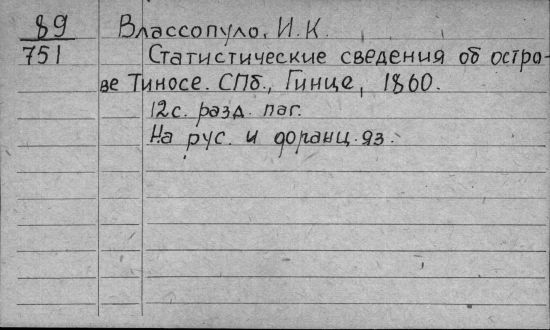 89 Влассопуло, И.К.
751 Статистические сведения об остро-
ве Тиносе. СПб., Гинце, 1860.
12с. разд. паг.
На рус. и франц. яз.